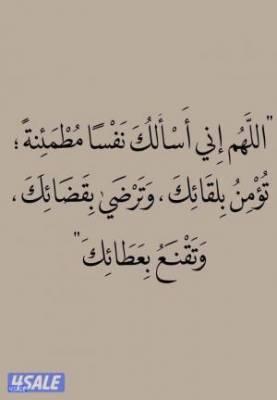 "اللَّهُم إِني أَسْأَلُكَ نَفْسًا مُطْمَئِنةً ؛
تُؤْمِنُ بِلقَائِكَ ، وَتَرْضَىٰ بِقَضَائِكَ ،
وَتَقْنَعُ بِعَطَائِكَ"
4SALE